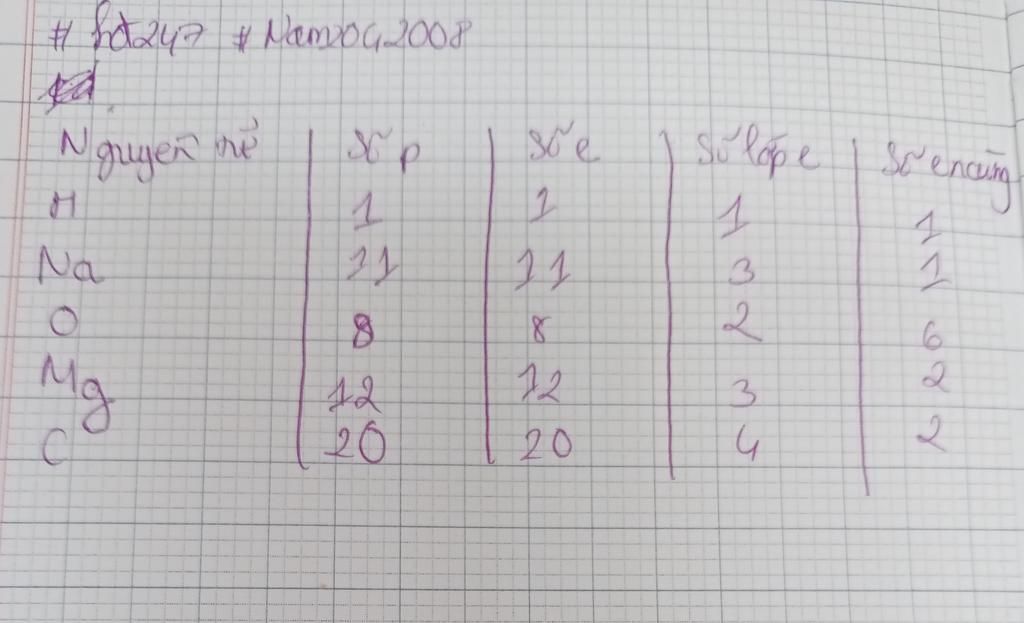 # hdt247 # Nam2042008
Nguyên tử Số p Số e Số lớp e Số e ncùng
H 1 1 1 1
Na 11 11 3 1
O 8 8 2 6
Mg 12 12 3 2
C 20 20 4 2